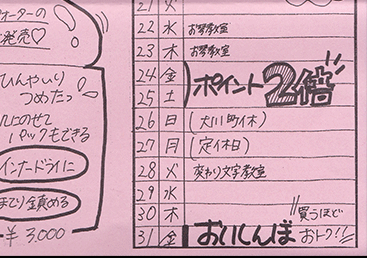 ォーターの
発売♡
ひんやいり
つめたっ
のせて
パックもできる
インナードライに
までり鎮める
¥3,000
21 火
22 水 お琴教室
23 木 お琴教室
24 金
25 土
ポイント2倍
26 日 (大川町休)
27 月 (定休日)
28 火 変わり文字教室
29 水
30 木
31 金 おいしんぼ
買うほど
おトク!!